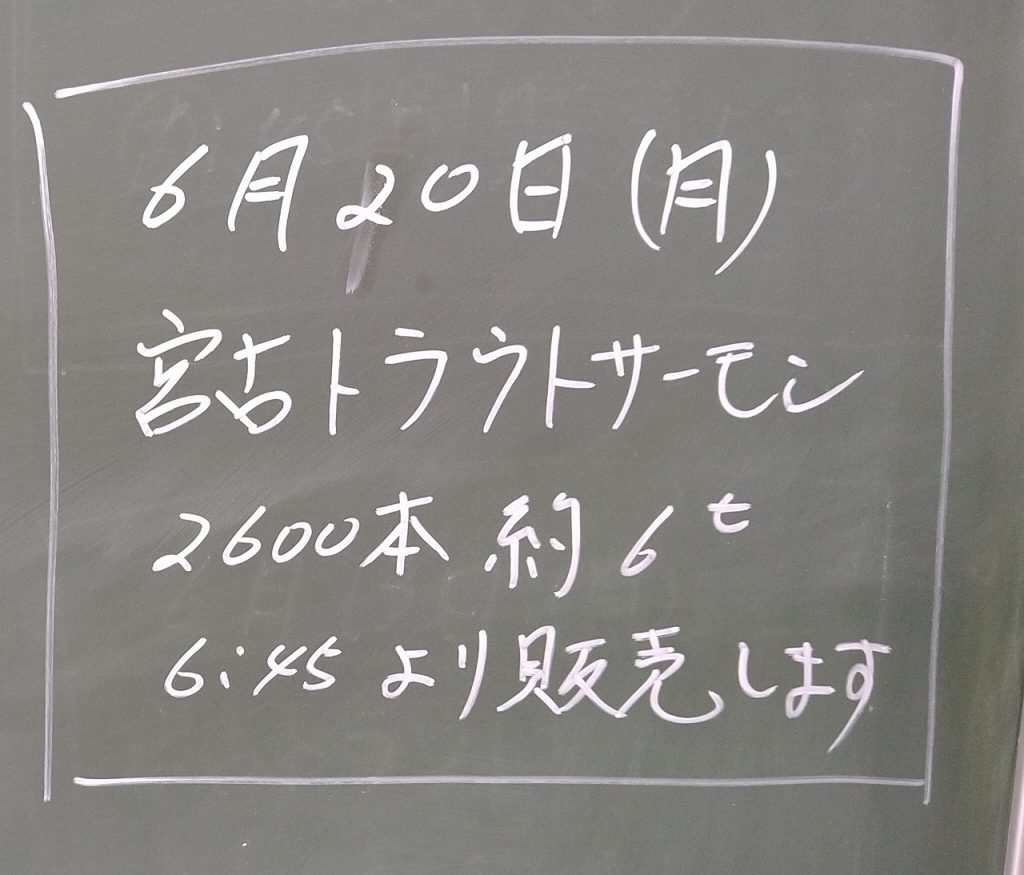 6月20日(月)
宮古トラウトサーモン
2600本 約6t
6:45より販売します